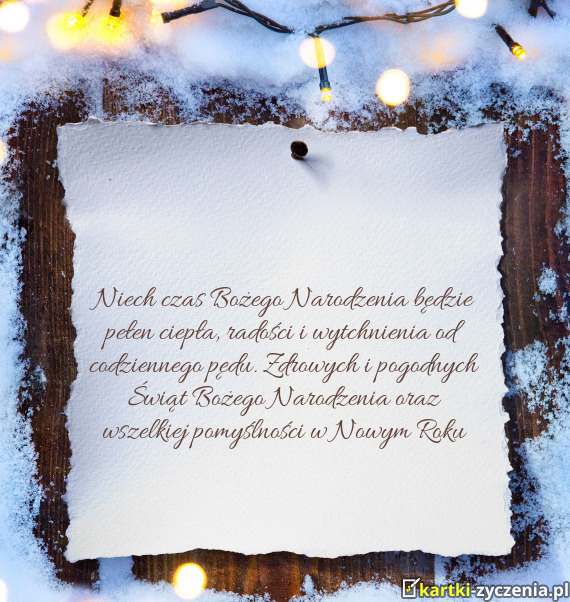 Niech czas Bożego Narodzenia będzie
pełen ciepła, radości i wytchnienia od
codziennego pędu. Zdrowych i pogodnych
Świąt Bożego Narodzenia oraz
wszelkiej pomyślności w Nowym Roku
kartki-zyczenia.pl